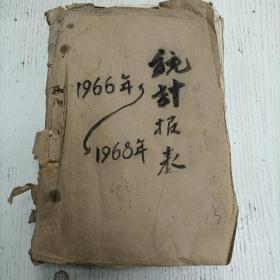 統計报表
1966年
1968年